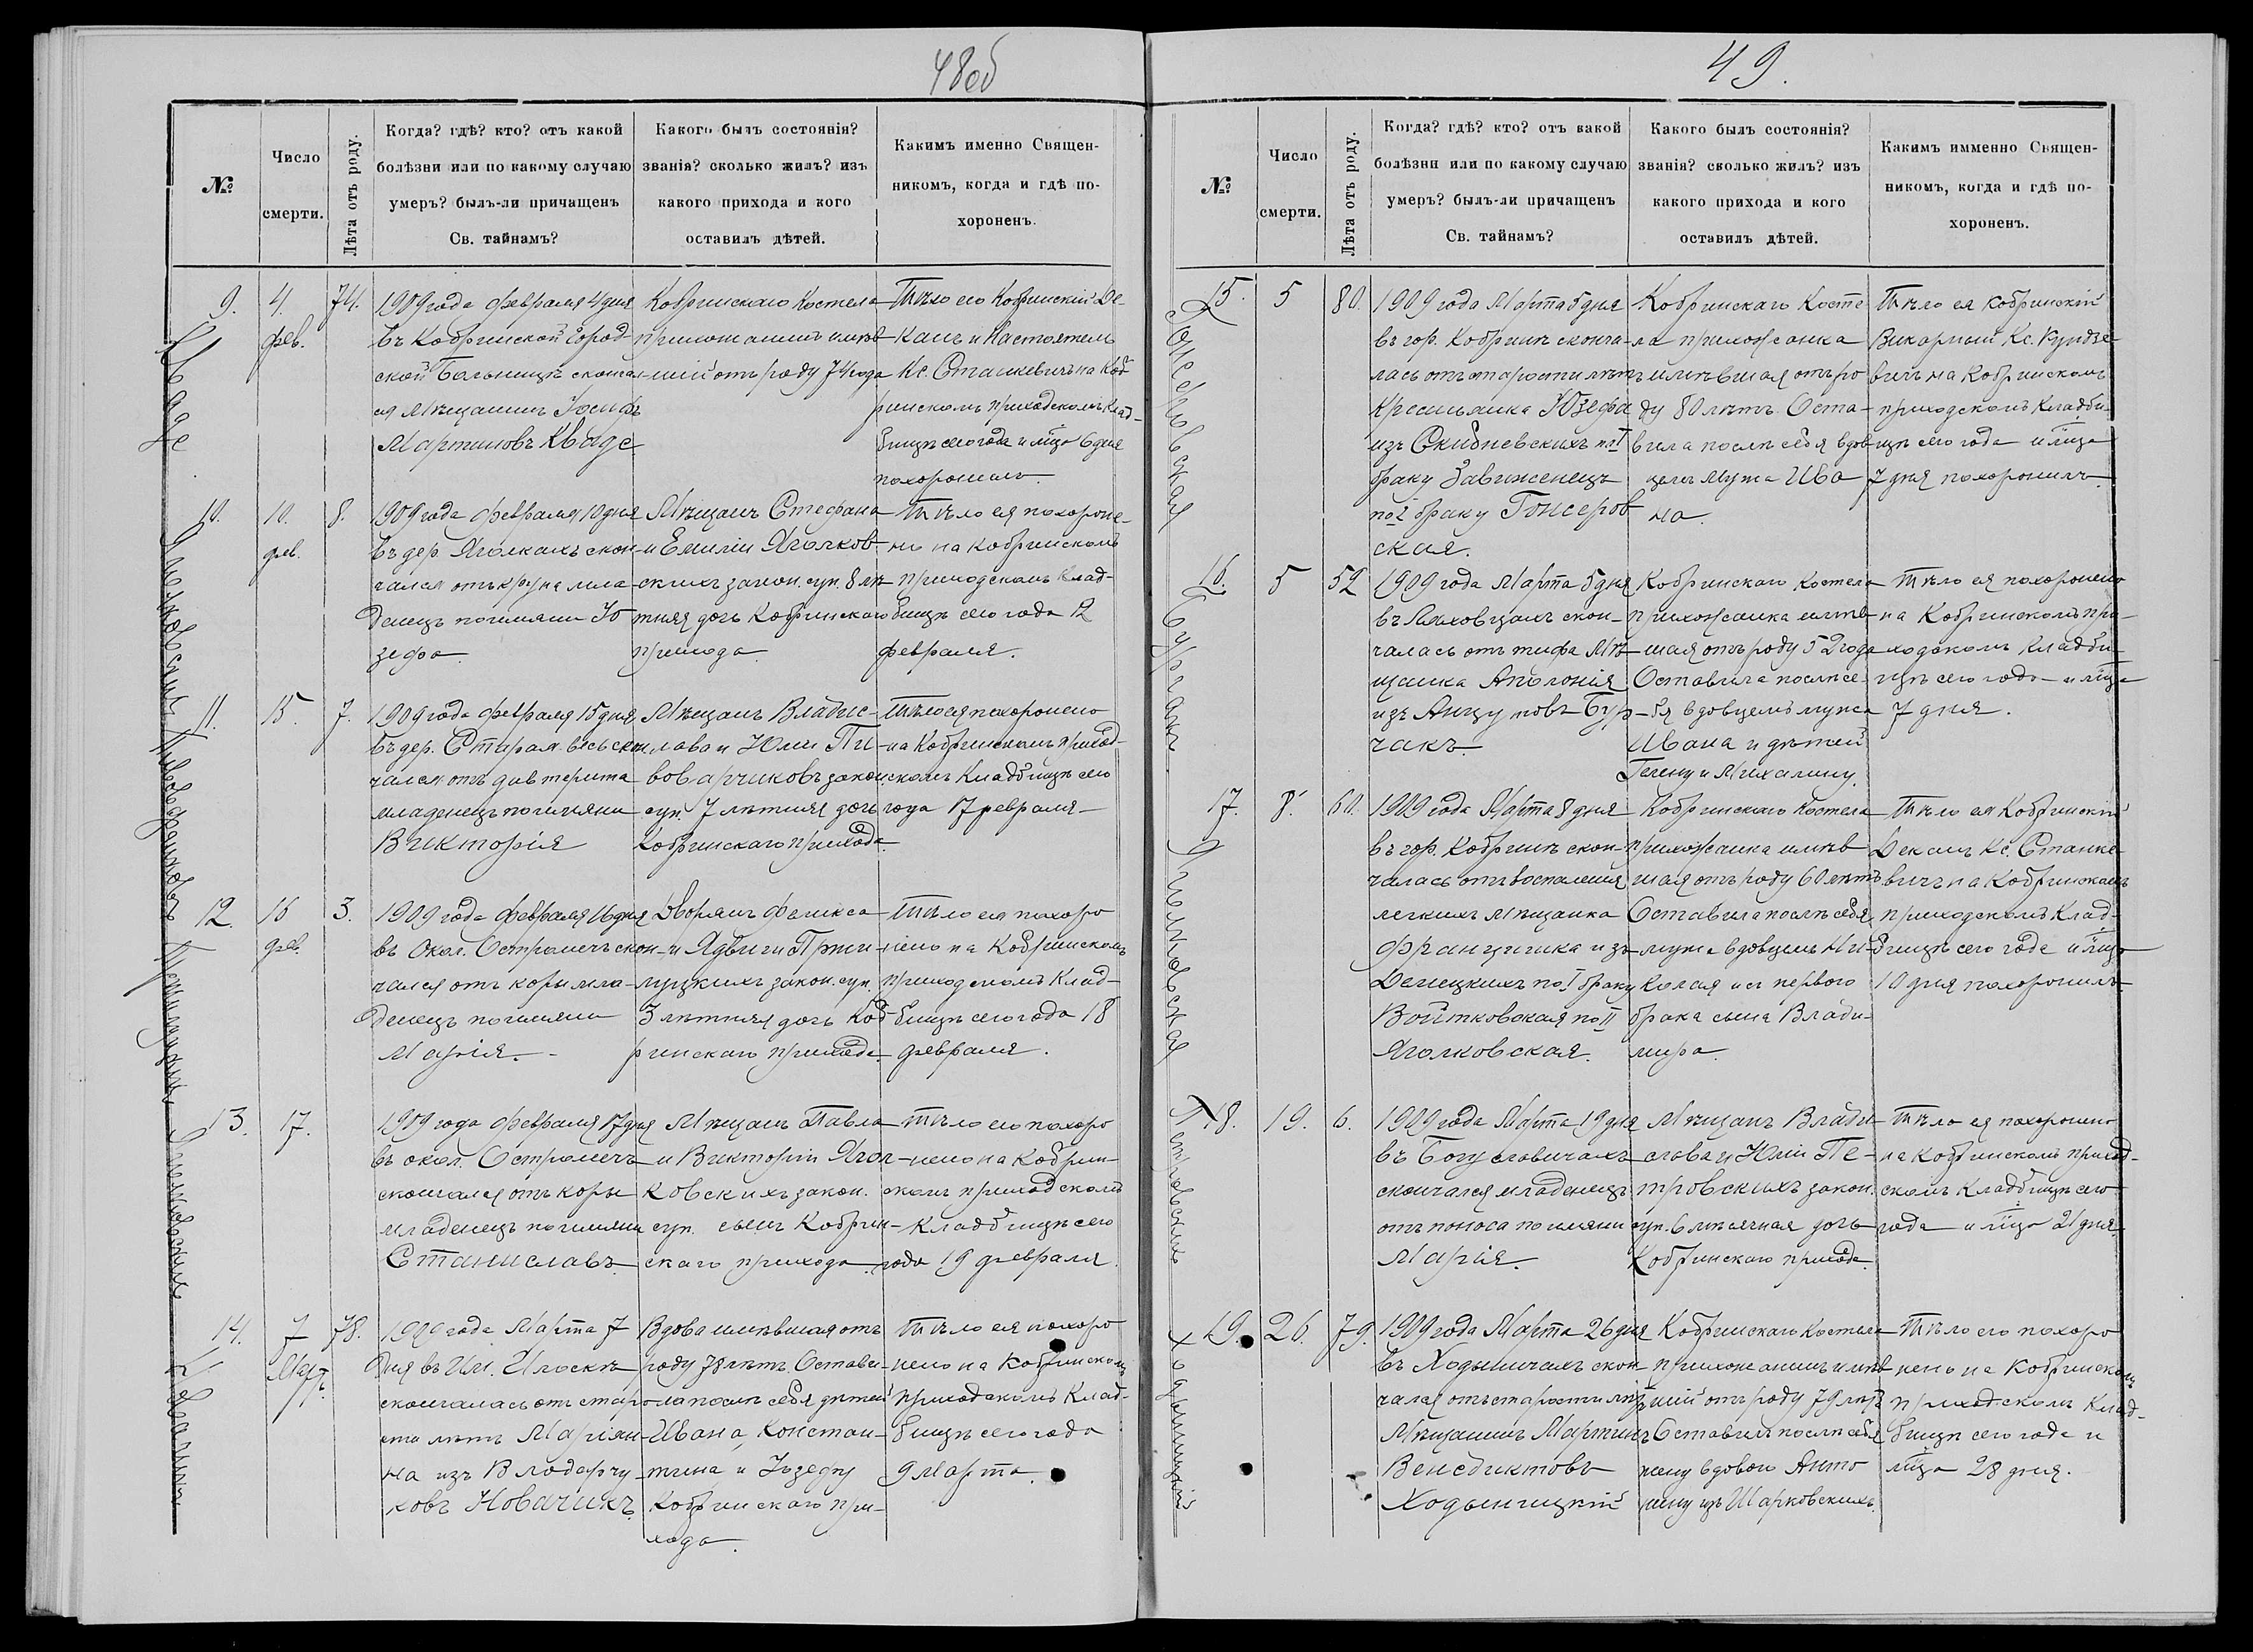 48об
№
Число
смерти.
Лѣта отъ роду.
Когда? гдѣ? кто? отъ какой
болѣзни или по какому случаю
умеръ? былъ-ли причащенъ
Св. тайнамъ?
Какого былъ состоянія?
званія? сколько жилъ? изъ
какого прихода и кого
оставилъ дѣтей.
Какимъ именно Священ-
никомъ, когда и гдѣ по-
хороненъ.
Кваде
9.
4.
фев.
74.
1909 года Февраля 4 дня
въ Кобринской Город-
ской Больницѣ скончал-
ся Мѣщанинъ Іосифъ
Мартиновъ Кваде
Кобринскаго Костела
прихожанинъ имѣв-
шій отъ роду 74 года
Тѣло его Кобринскій Де-
канъ и Настоятель
Кс. Станкевичъ на Коб-
ринскомъ приходскомъ Клад-
бищѣ сего года и м-ца 6 дня
похоронилъ.
Яголковскихъ
10.
10.
фев.
8.
1909 года Февраля 10 дня
въ дер. Яголкахъ скон-
чался отъ крупа мла-
денецъ по имяни Ю
зефа.
Мѣщанъ Стефана
и Емиліи Яголков-
скихъ закон. суп. 8 лѣ-
тняя дочь Кобринскаго
прихода.
Тѣло ея похороне-
но на Кобринскомъ
приходскомъ Клад-
бищѣ сего года 12
февраля.
Пивоварчиковъ
11.
15.
7.
1909 года Февраля 15 дня
въ дер. Старая-весь скон
чался отъ дивтерита
младенецъ по имяни
Викторія
Мѣщанъ Владис-
лава и Юліи Пи-
воварчиковъ закон.
суп. 7 лѣтняя дочь
Кобринскаго прихода.
Тѣло ея похоронено
на Кобринскомъ приход-
скомъ Кладбищѣ сего
года 17 февраля
Пржилуцкихъ
12.
16
фев.
3.
1909 года Февраля 16 дня
въ Окол. Остромечъ скон-
чался отъ кори мла-
денецъ по имяни
Марія.
Дворянъ Феликса
и Ядвиги Пржи-
луцкихъ закон. суп.
3 лѣтняя дочь Коб-
ринскаго прихода.
Тѣло ея похоро
нено на Кобринскомъ
приходскомъ Клад-
бищѣ сего года 18
февраля.
Яголковскихъ
13.
17.
1909 года Февраля 17 дня
въ окол. Остромечъ
скончался отъ кори
младенецъ по имяни
Станиславъ.
Мѣщанъ Павла
и Викторіи Ягол-
ковскихъ закон.
суп. сынъ Кобрин-
скаго прихода.
Тѣло его похоро
нено на Кобрин-
скомъ приходскомъ
Кладбищѣ сего
года 19 февраля.
14.
7
Март.
78.
1909 года Марта 7
дня въ Им. Илоскѣ
скончалась отъ старо
сти лѣтъ Маріян-
на изъ Влодарчу
ковъ Новачикъ.
Вдова имѣвшая отъ
роду 78 лѣтъ Остави-
ла послѣ себя дѣтей
Ивана, Констан-
тина и Юзефу
Кобринскаго при-
хода.
Тѣло ея похоро
нено на Кобринскомъ
приходскомъ Клад-
бищѣ сего года
9 Марта.
49.
№
Число
смерти.
Лѣта отъ роду.
Когда? гдѣ? кто? отъ какой
болѣзни или по какому случаю
умеръ? былъ-ли причащенъ
Св. тайнамъ?
Какого былъ состоянія?
званія? сколько жилъ? изъ
какого прихода и кого
оставилъ дѣтей.
Какимъ имменно Священ-
никомъ, когда и гдѣ по-
хороненъ.
Гонсеровская
15.
5
80.
1909 года Марта 5 дня
въ гор. Кобринѣ сконча-
лась отъ старости лѣтъ
Крестьянка Юзефа
изъ Скибневскихъ по I
браку Завиженецъ
по 2 браку Гонсеров
ская.
Кобринскаго Косте
ла прихожанка
имѣвшая отъ ро
ду 80 лѣтъ. Оста-
вила послѣ себя вдов
цемъ мужа Ива
на.
Тѣло ея Кобринскій
Викарный Кс. Рундзе
вичъ на Кобринскомъ
приходскомъ Кладби-
щѣ сего года и м-ца
7 дня похоронилъ.
Бурчакъ.
16.
5
52
1909 года Марта 5 дня
скон-
чалась отъ тифа Мѣ-
щанка Аполонія
изъ Анцутовъ Бур-
чакъ.
Кобринскаго Костела
прихожанка имѣв-
шая отъ роду 52 года
Оставила послѣ се-
бя вдовцемъ мужа
Ивана и дѣтей
Гелену и Михалину.
Тѣло ея похоронено
на Кобринскомъ при-
ходскомъ Кладби-
щѣ сего года и м-ца
7 дня.
Яголковская
17.
8.
60.
1909 года Марта 8 дня
въ гор. Кобринѣ скон-
чалась отъ воспаленія
легкихъ мѣщанка
Францишка изъ
Денецкихъ по I браку
Войтковская по II
Яголковская.
Кобринскаго Костела
прихожанка имѣв
шая отъ роду 60 лѣтъ
Оставила послѣ себя
мужа вдовцемъ Ни-
колая и съ первого
брака сына Влади-
мира.
Тѣло ея Кобринскій
Деканъ Кс. Станке-
вичъ на Кобринскомъ
приходскомъ Клад-
бищѣ сего года и м-ца
10 дня похоронилъ.
Петровскихъ
18.
19.
6.
1909 года Марта 19 дня
въ Богуславичахъ
скончался младенецъ
отъ поноса по имяни
Марія.
Мѣщанъ Влади
слава и Юліи Пе-
тровскихъ закон.
суп. 6 мѣсячная дочь
Кобринскаго прихода.
Тѣло ея похоронено
на Кобринскомъ приход-
скомъ Кладбищѣ сего
года и м-ца 21 дня.
Ходыницкій
19.
26.
79.
1909 года Марта 26 дня
въ Ходыничахъ скон
чался отъ старости лѣтъ
Мѣщанинъ Мартинъ
Венедиктовъ
Ходыницкій
Кобринскаго Костела
прихожанинъ имѣв
шій отъ роду 79 лѣтъ
Оставилъ послѣ себя
жену вдовою Анто
нину изъ Шарковскихъ.
Тѣло его похоро
нено на Кобринскомъ
приходскомъ Клад-
бищѣ сего года и
м-ца 28 дня.